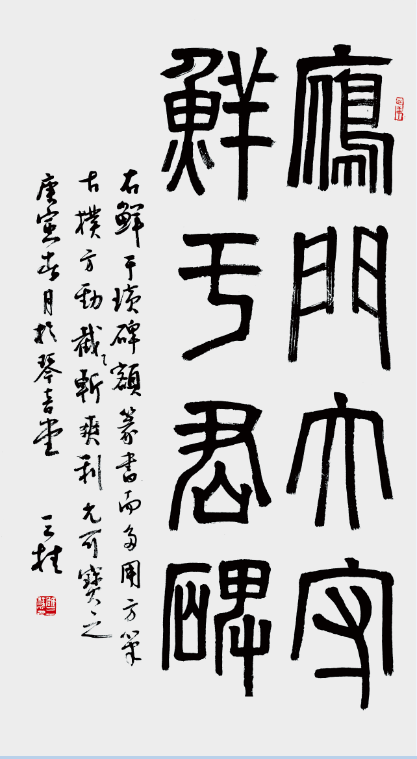 鴈門大守
鮮于君碑
右鮮于璜碑額篆書而多用方筆
古撲方勁截斬爽利尤可寶之
庚寅春月於琴音堂